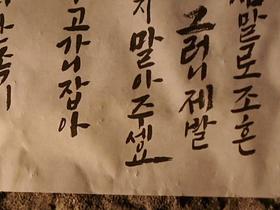 말도조흔
그러니제발
지말아주세요
고가니잡아